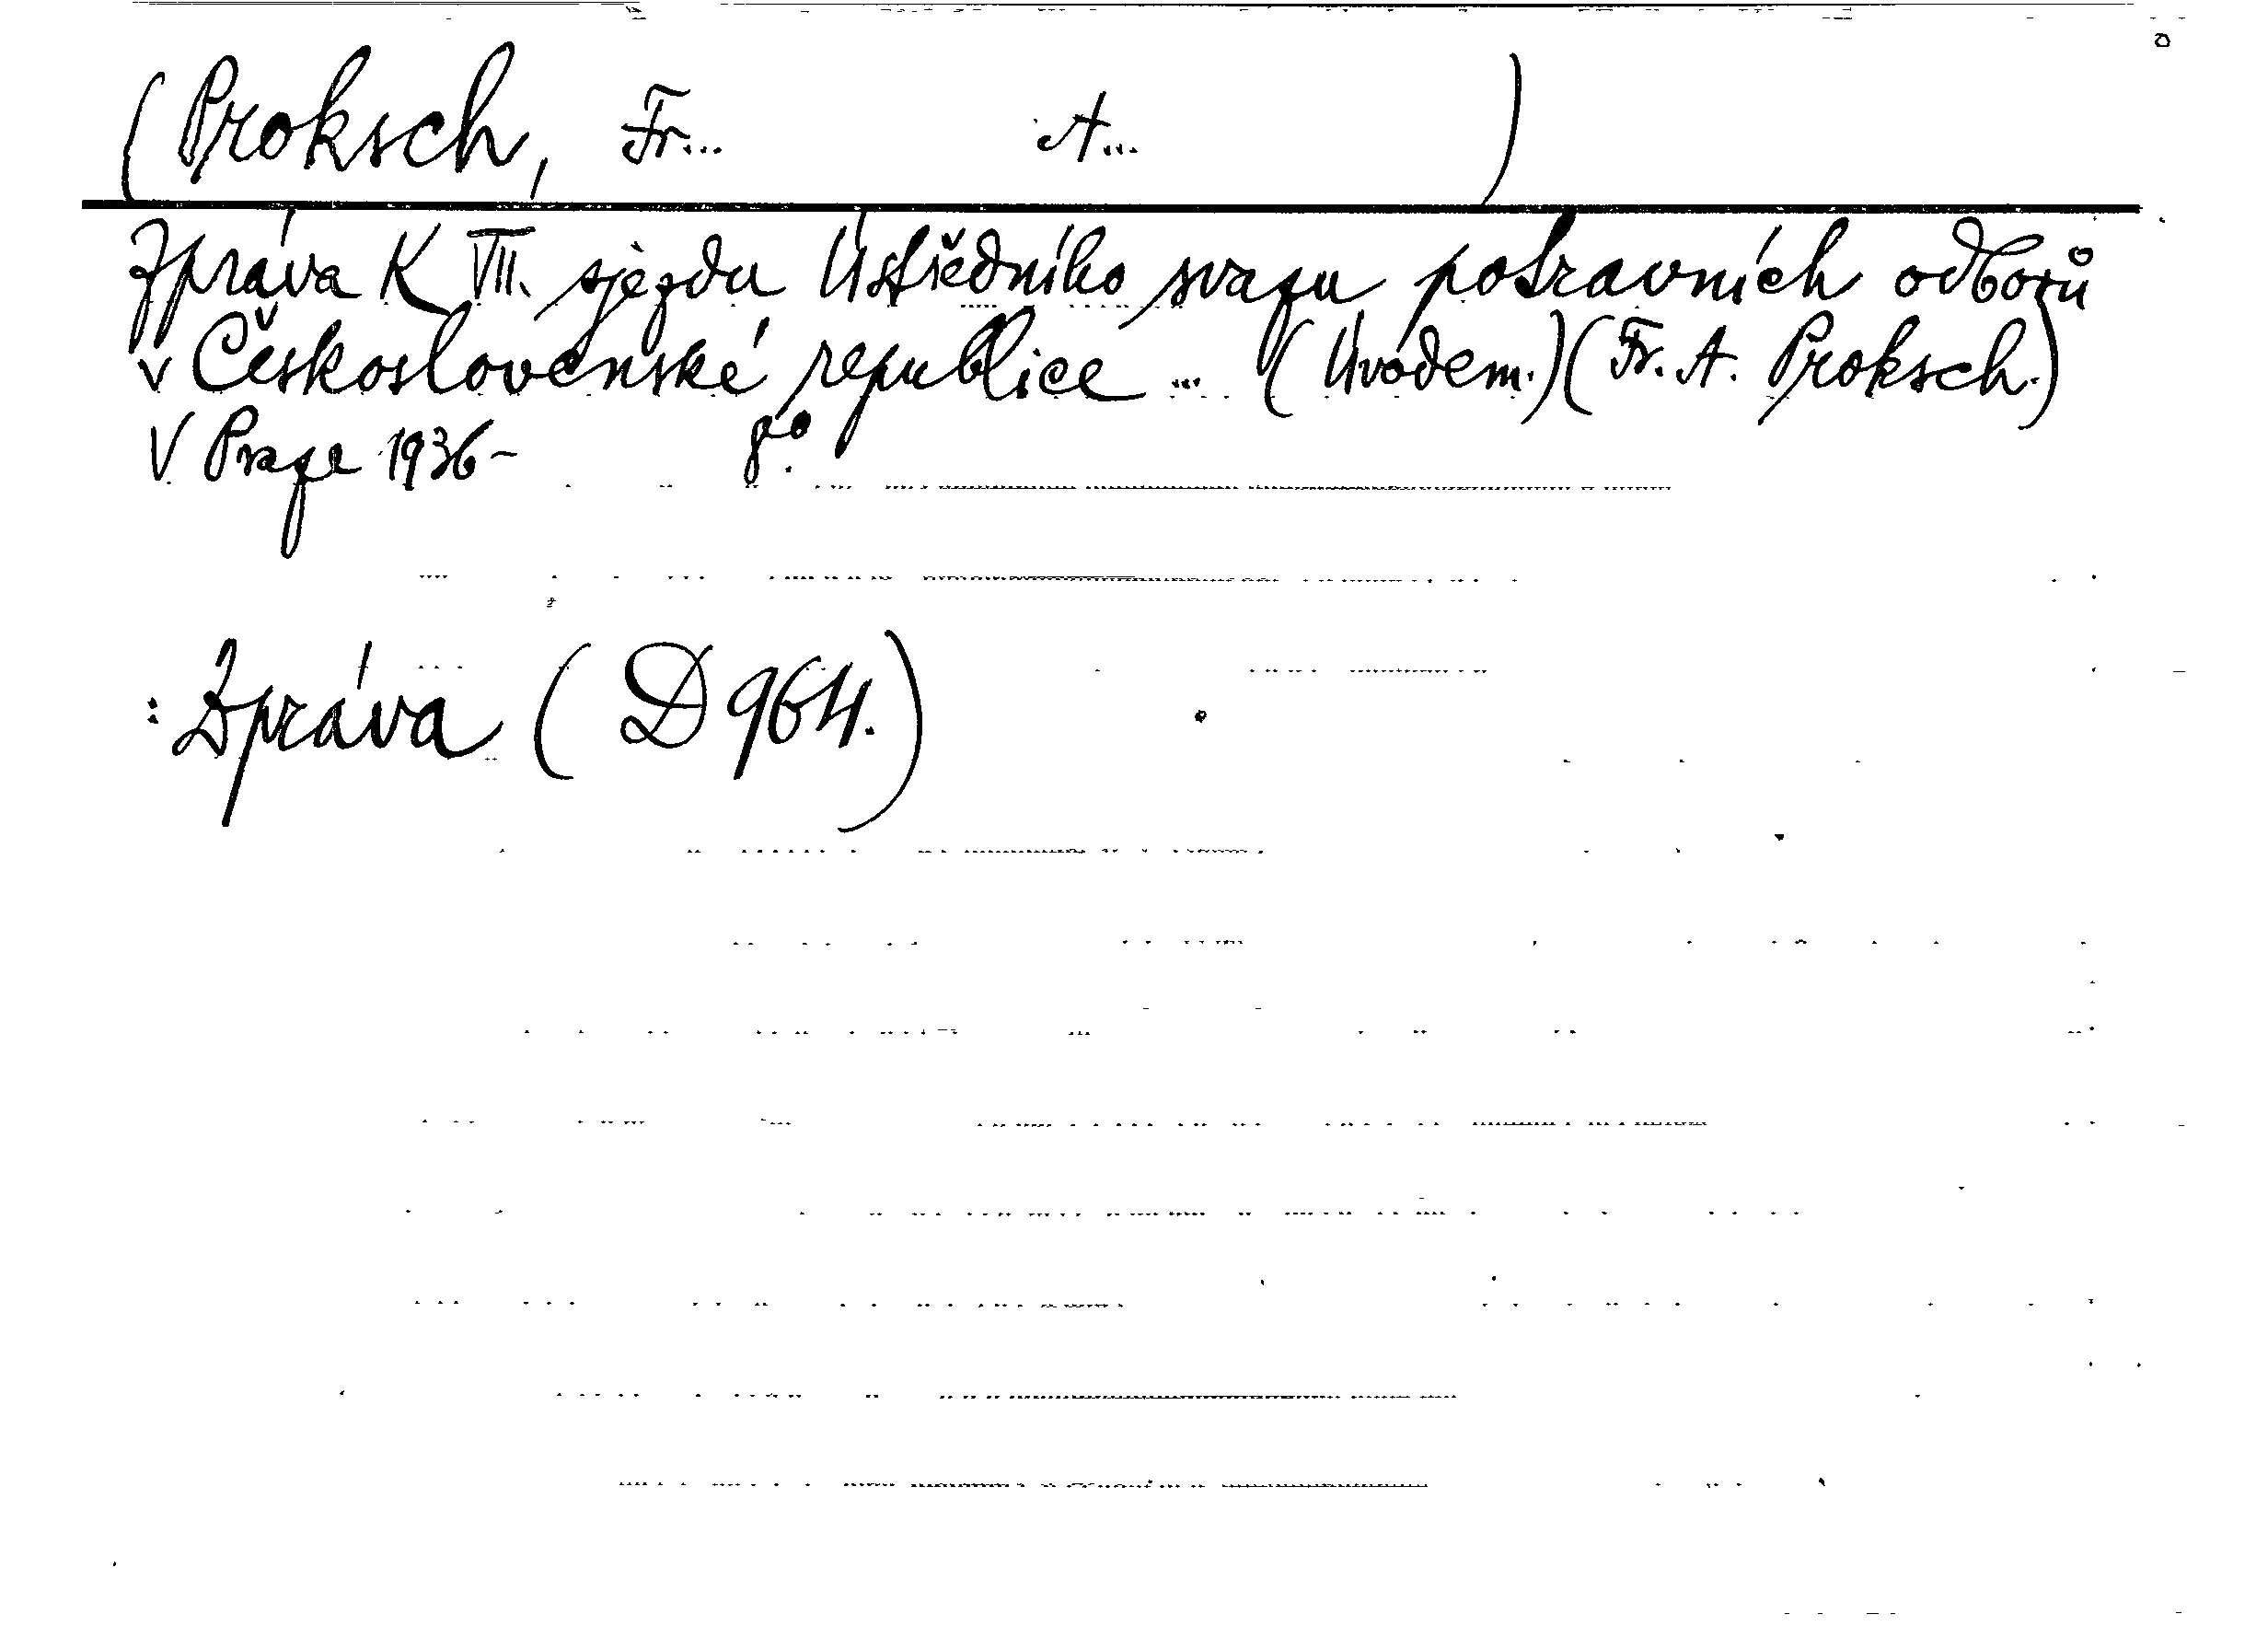 (Proksch, Fr... A... )
Zpráva K VII. sjezdu Ústředního svazu potravních odborů
v Československé republice ... (Úvodem.) (Fr. A. Proksch.)
V Praze 1936- 8°.
: Zpráva (D 964.)